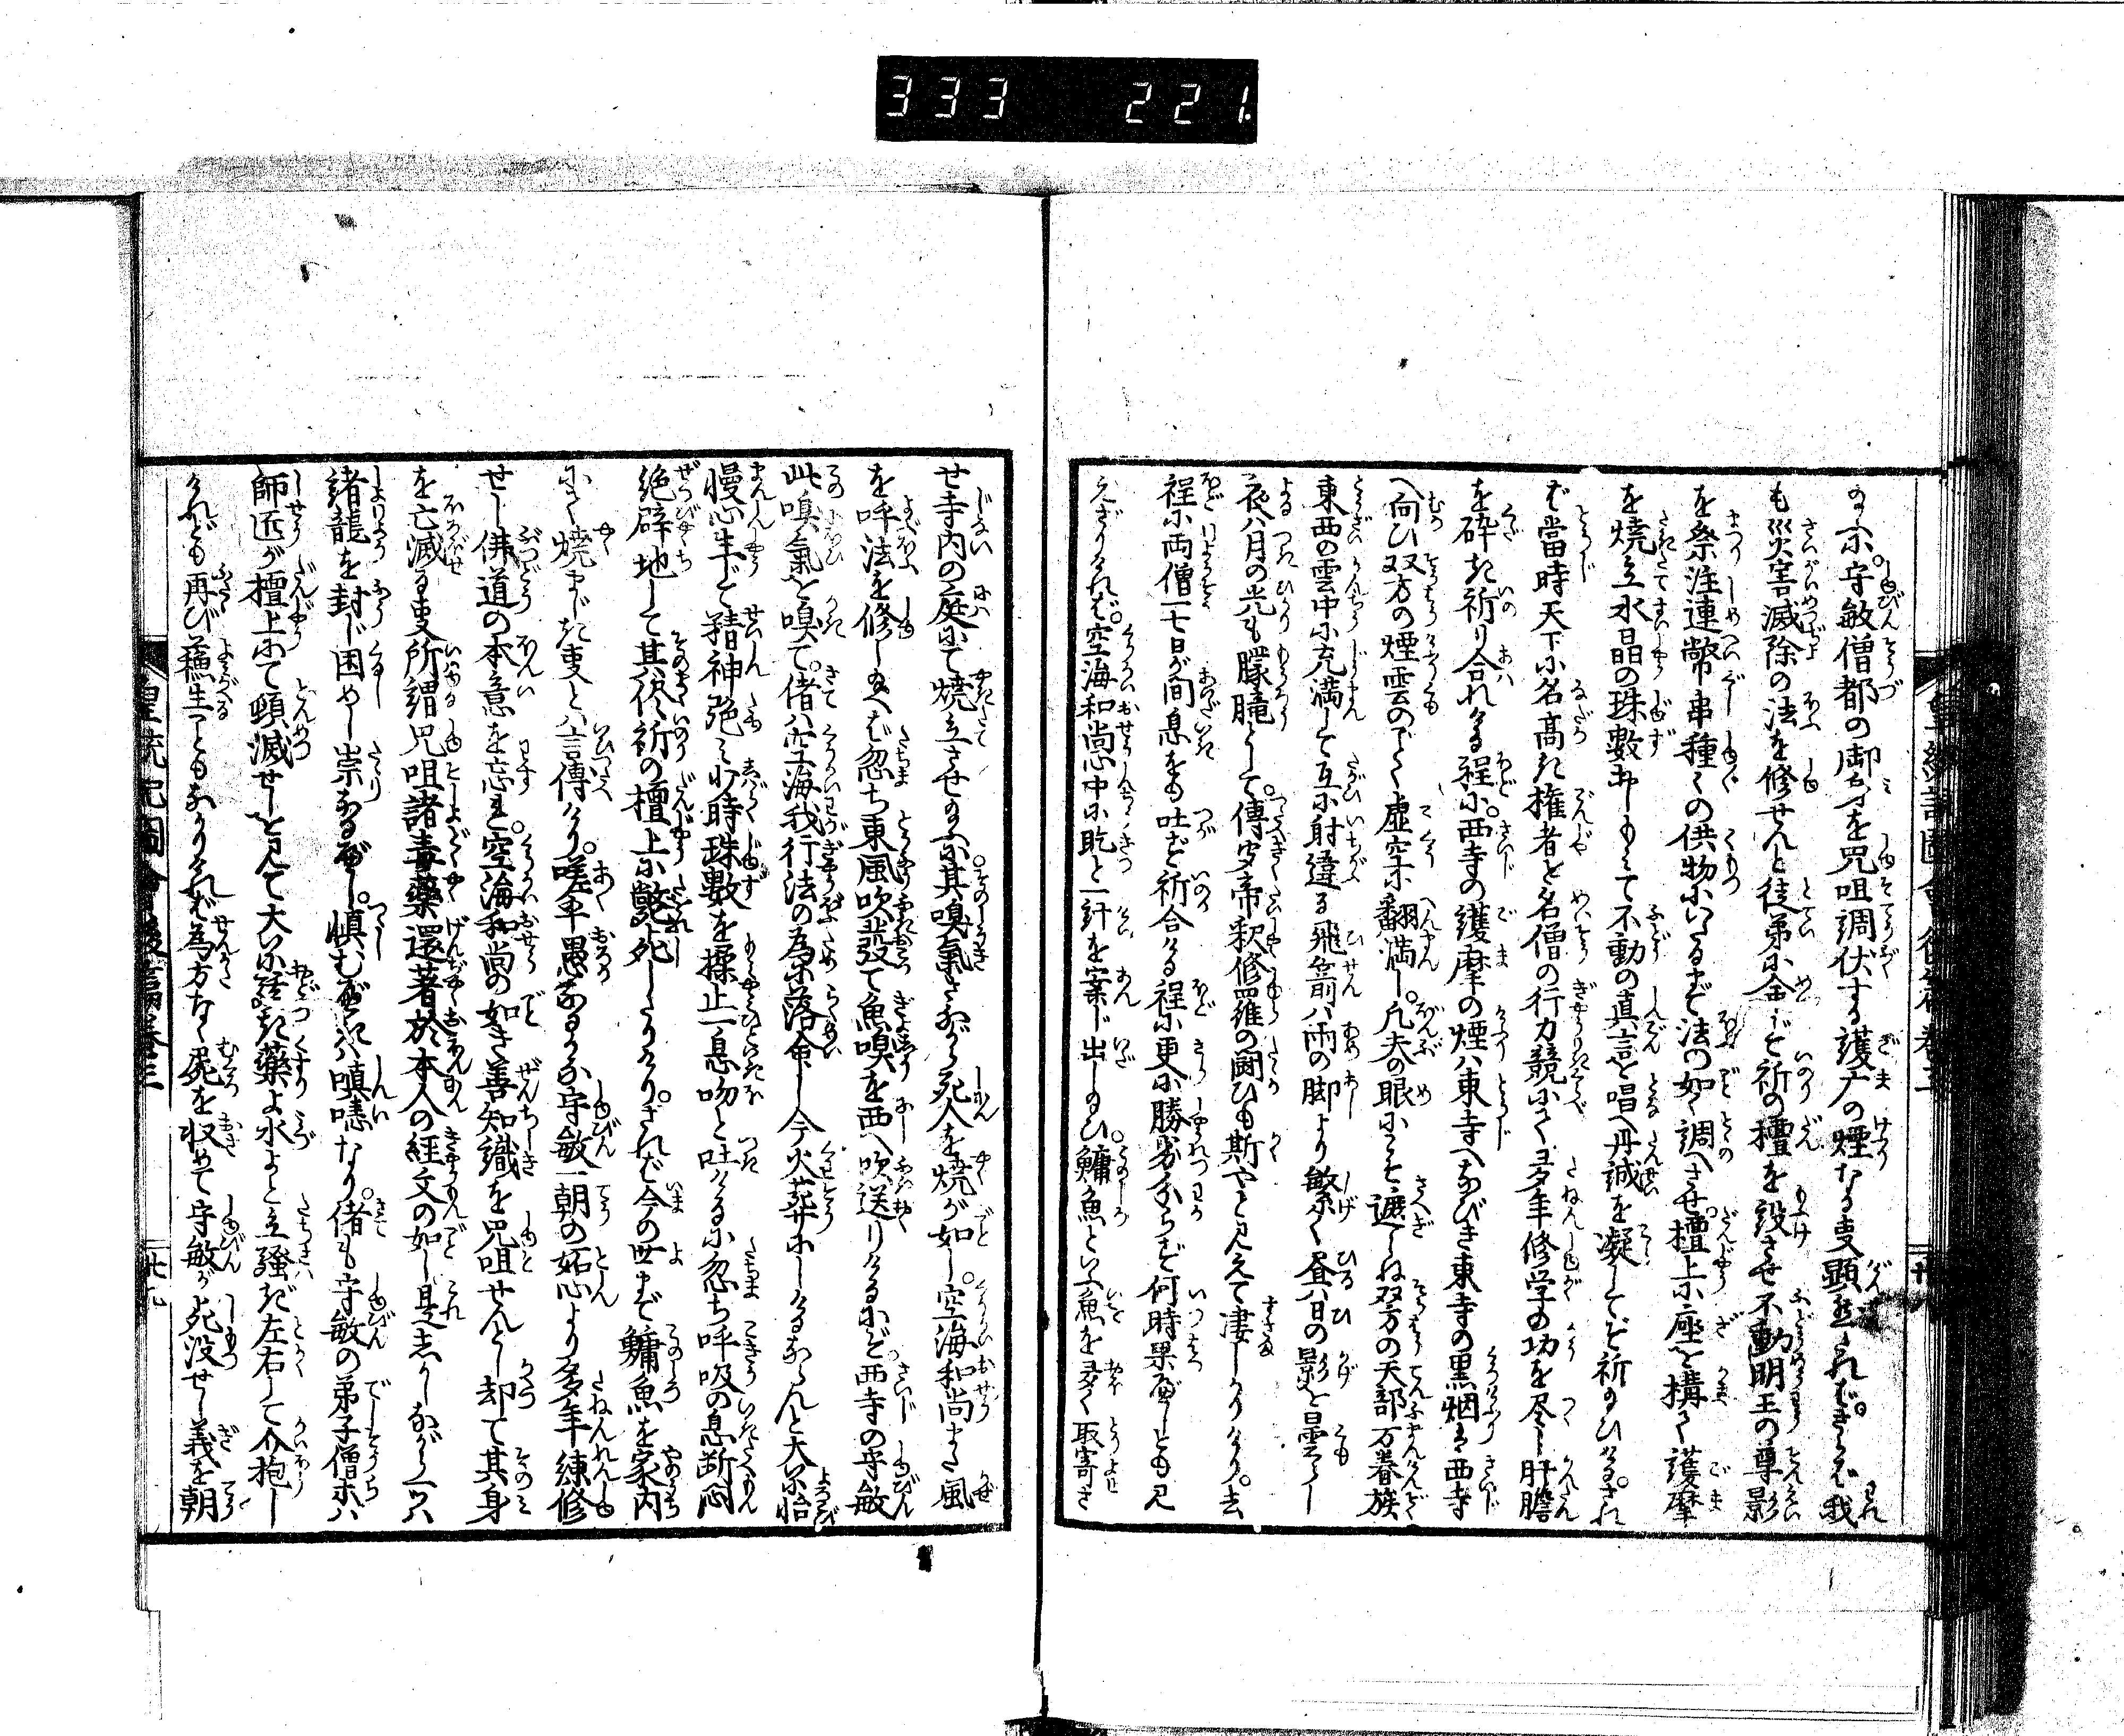 333 221.
のふに守敏僧都の御身を咒咀調伏する護广の煙なる支顕然されバさらバ我
も災害滅除の法を修せんと徒弟に命じて祈の檀を設させ不動明王の尊影
を祭注連幣串種々の供物にいたるまで法の如く調へさせ檀上に座を搆へ護摩
を焼立水晶の珠數おしもミて不動の真言を唱へ丹誠を凝してぞ祈のひける。され
ば當時天下に名高き権者と名僧の行力競にて多年修学の功を尽し肝膽
を砕き祈り合れける程に。西寺の護摩の煙ハ東寺へなびき東寺の黒烟ハ西寺
へ向ひ双方の煙雲のごく虚空に翻満し。凡夫の眼にこそ遮らね双方の天部万眷族
東西の雲中に充満して互に射違る飛箭ハ雨の脚より繁く昼ハ日の影を曇らし
夜ハ月の光も朦朧として。傳聞帝釈修羅の闘ひも斯やと見えて凄しかりけり。去
程に両僧一七日が間息をも吐ず祈合ける程に更に勝劣分らず何時果べしとも見
えざりけれバ。空海和尚心中に屹と一計を案じ出しのひ。鱅魚といふ魚を多く取寄さ
せ寺内の庭にて焼立させのふに。其嗅氣さながら死人を焼が如し。空海和尚また風
を呼法を修しのへば忽ち東風吹發て魚嗅を西へ吹送りけるにぞ。西寺の守敏
此嗅氣を嗅て。偖ハ空海我行法の為に落命し今火葬にしけるならんと大に怡
慢心生じ精神弛ミ少時珠數を揉止一息吻と吐けるに忽ち呼吸の息断悶
絶躃地して其侭祈の檀上に斃死したりけり。されば今の世まで鱅魚を家内
にて焼まじき支とハ言傳へけり。嗟乎愚なるかな守敏一朝の妬心より多年練修
せし佛道の本意を忘れ。空海和尚の如き善知識を咒咀せんとし却て其身
を亡滅る支所謂咒咀諸毒藥還著於本人の経文の如し是しかしながら一ツハ
諸龍を封じ困めし祟なるべし。慎むべきハ嗔恚なり。偖も守敏の弟子僧ホハ
師匠が檀上にて頓滅せしを見て大に駭き藥よ水よと立騒ぎ左右して介抱し
けれども再び蘇生ることもなかりけれバ為方なく屍を収めて守敏が死没せし義を朝
皇統記圖會後篇卷三
廿九